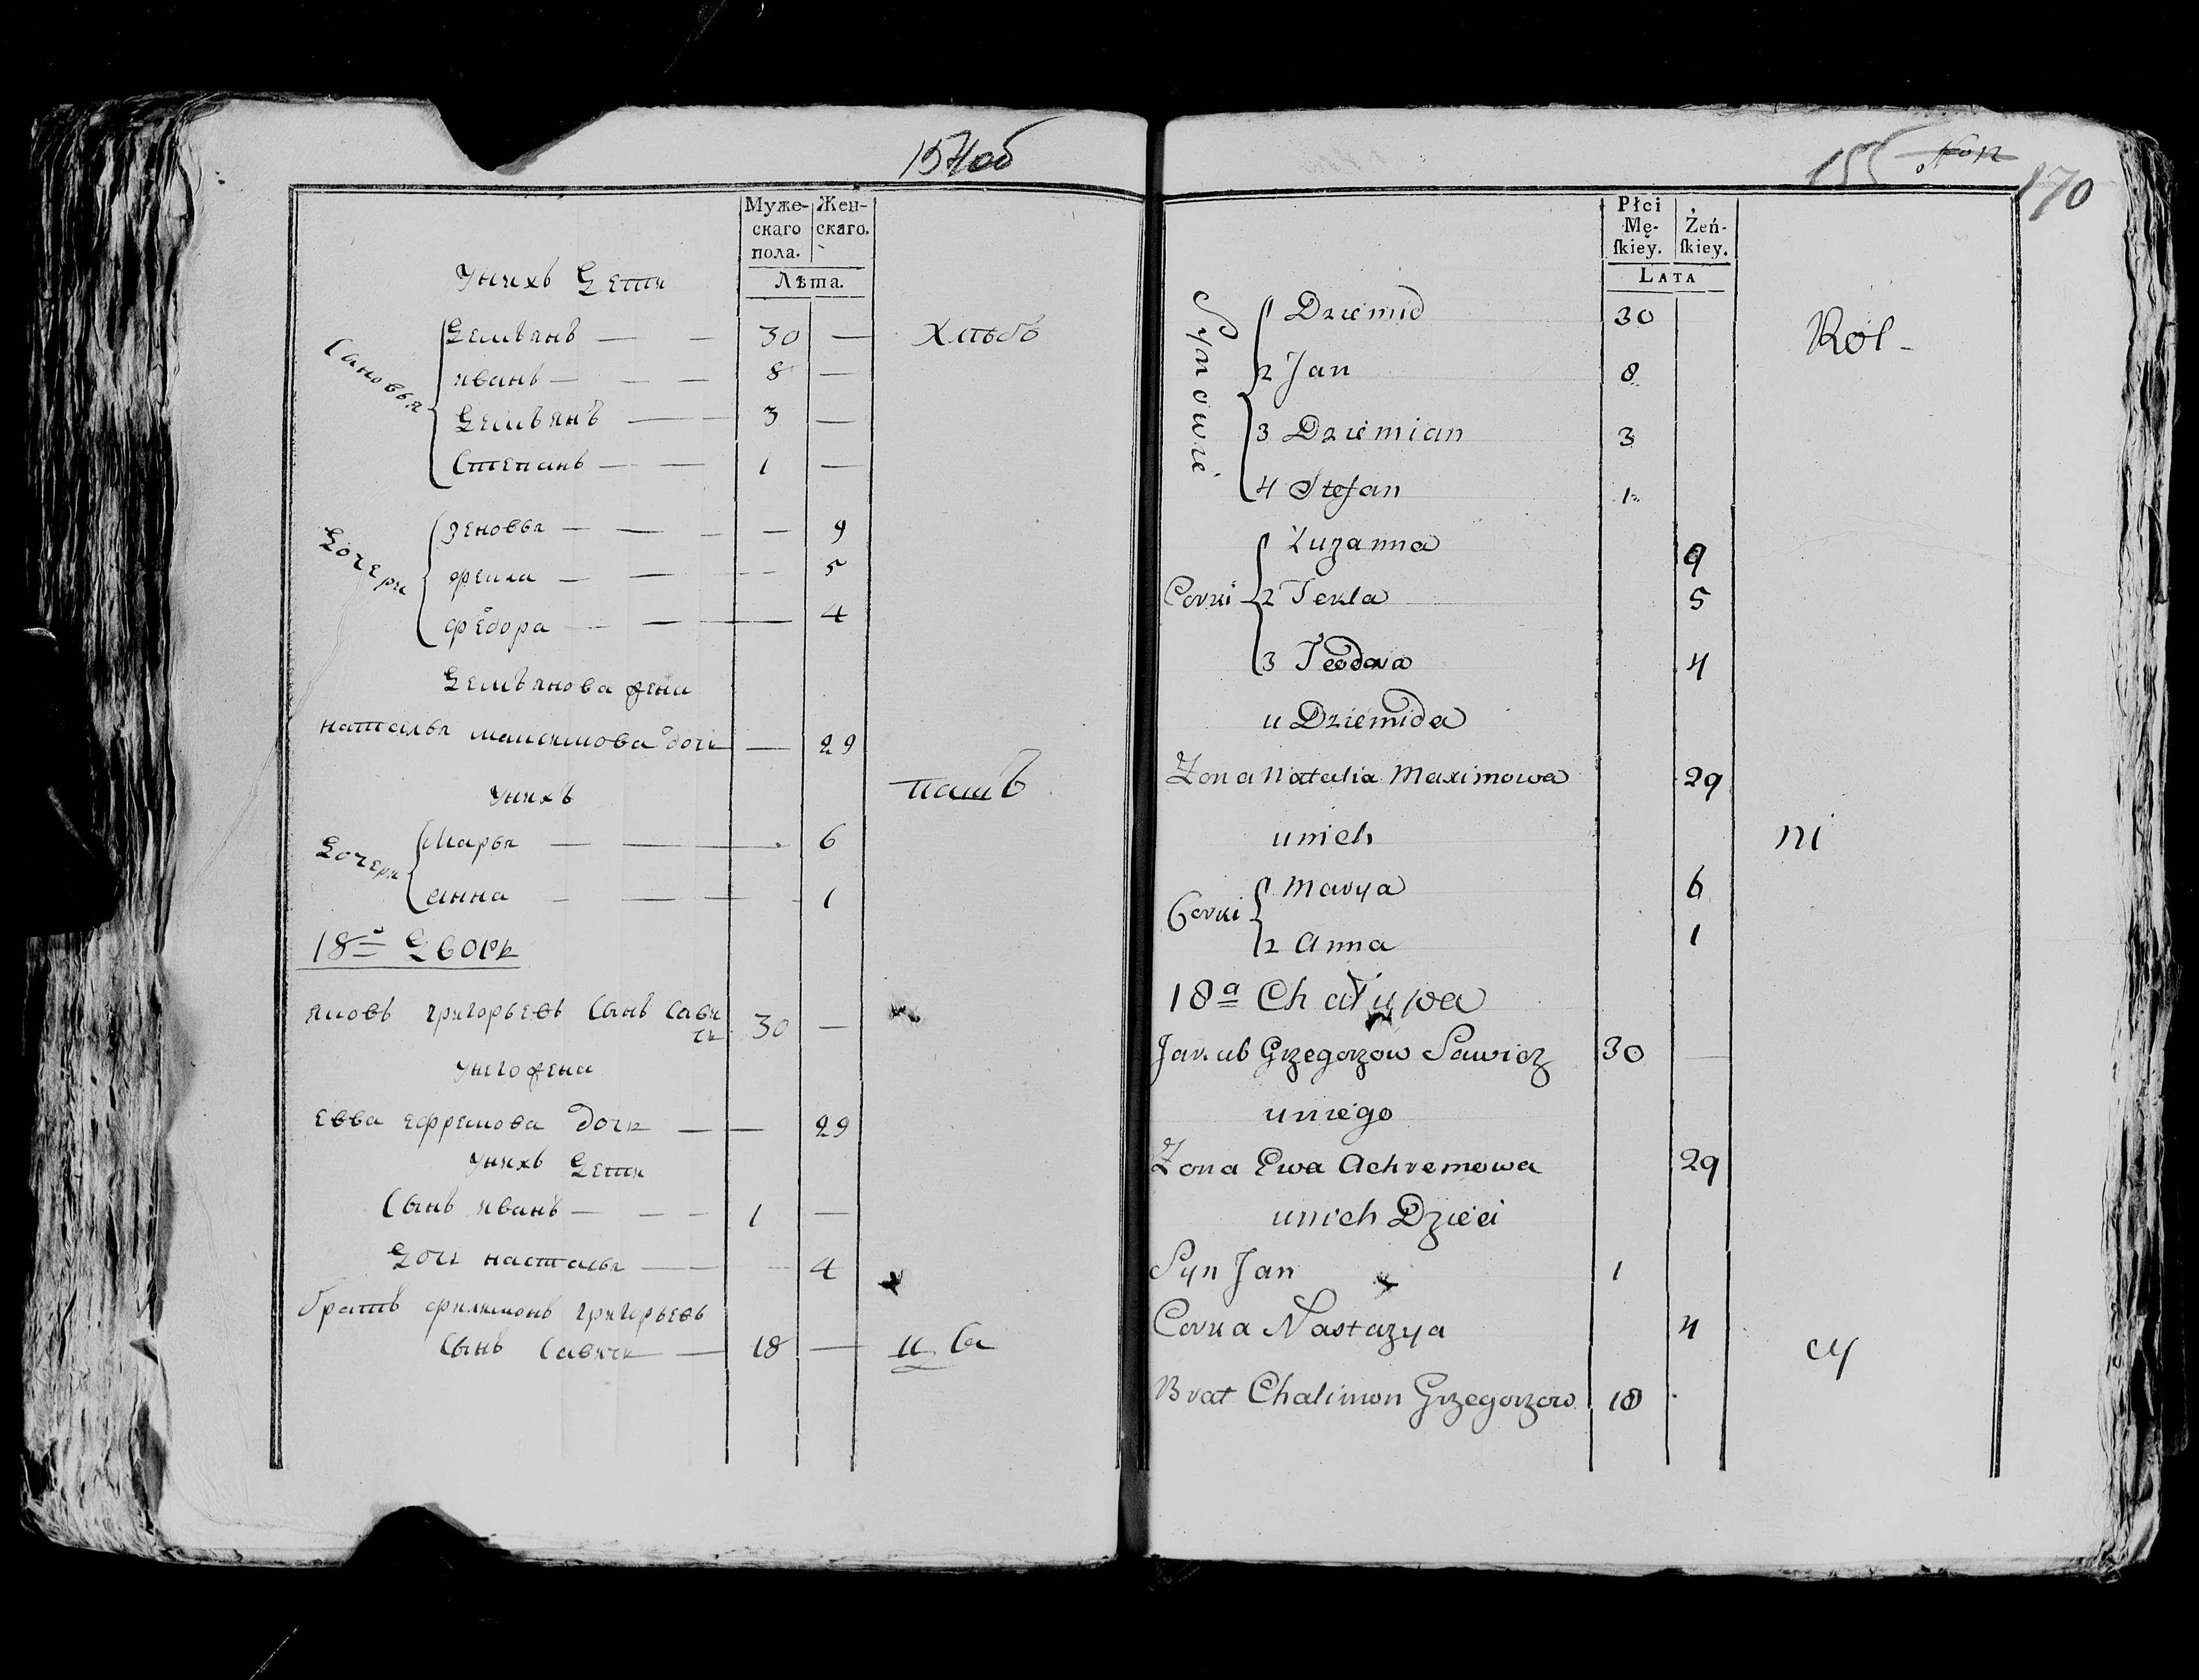 154об
Муже-
скаго
пола.
Жен-
скаго.
Лѣта.
унихъ Дети
Сановья
Демьянъ — — 30 — Хлѣбъ
иванъ — — — 8 —
Демьянъ — — 3 —
Степанъ — — 1 —
Дочери
Зеновья — — — — 9
фекла — — — 5
федора — — — 4
Демьянова жена
наталья максимова дочь — 29
унихъ пашъ
Дочери
Марья — — — 6
анна — — — 1
18й Дворъ
яковъ григорьевъ Сынъ Сави
чь 30 —
унего жена
евва ефремова дочь — — 29
унихъ Дети
Сынъ иванъ — — — 1 —
Дочь настасья — — 4
братъ филимонъ григорьевъ
Сынъ Савичь — 18 —
155
170
Płci
Mę-
ſkiey.
Żeń-
ſkiey.
Lata
Synowie
1 Dziemid 30 Rol-
2 Jan 8
3 Dziemian 3
4 Stefan 1
Corki
1 Zuzanna 9
2 Tekla 5
3 Teodora 4
u Dziemida
Zona Natalia Maximowa 29
unich ni
Corki
1 Marya 6
2 Anna 1
18a Chałupa
Jakub Grzegorzow Sawicz 30 —
uniego
Zona Ewa Achremowa 29
unich Dzieci
Syn Jan 1
Corka Nastazya 4
cy
Brat Chalimon Grzegorzow 18